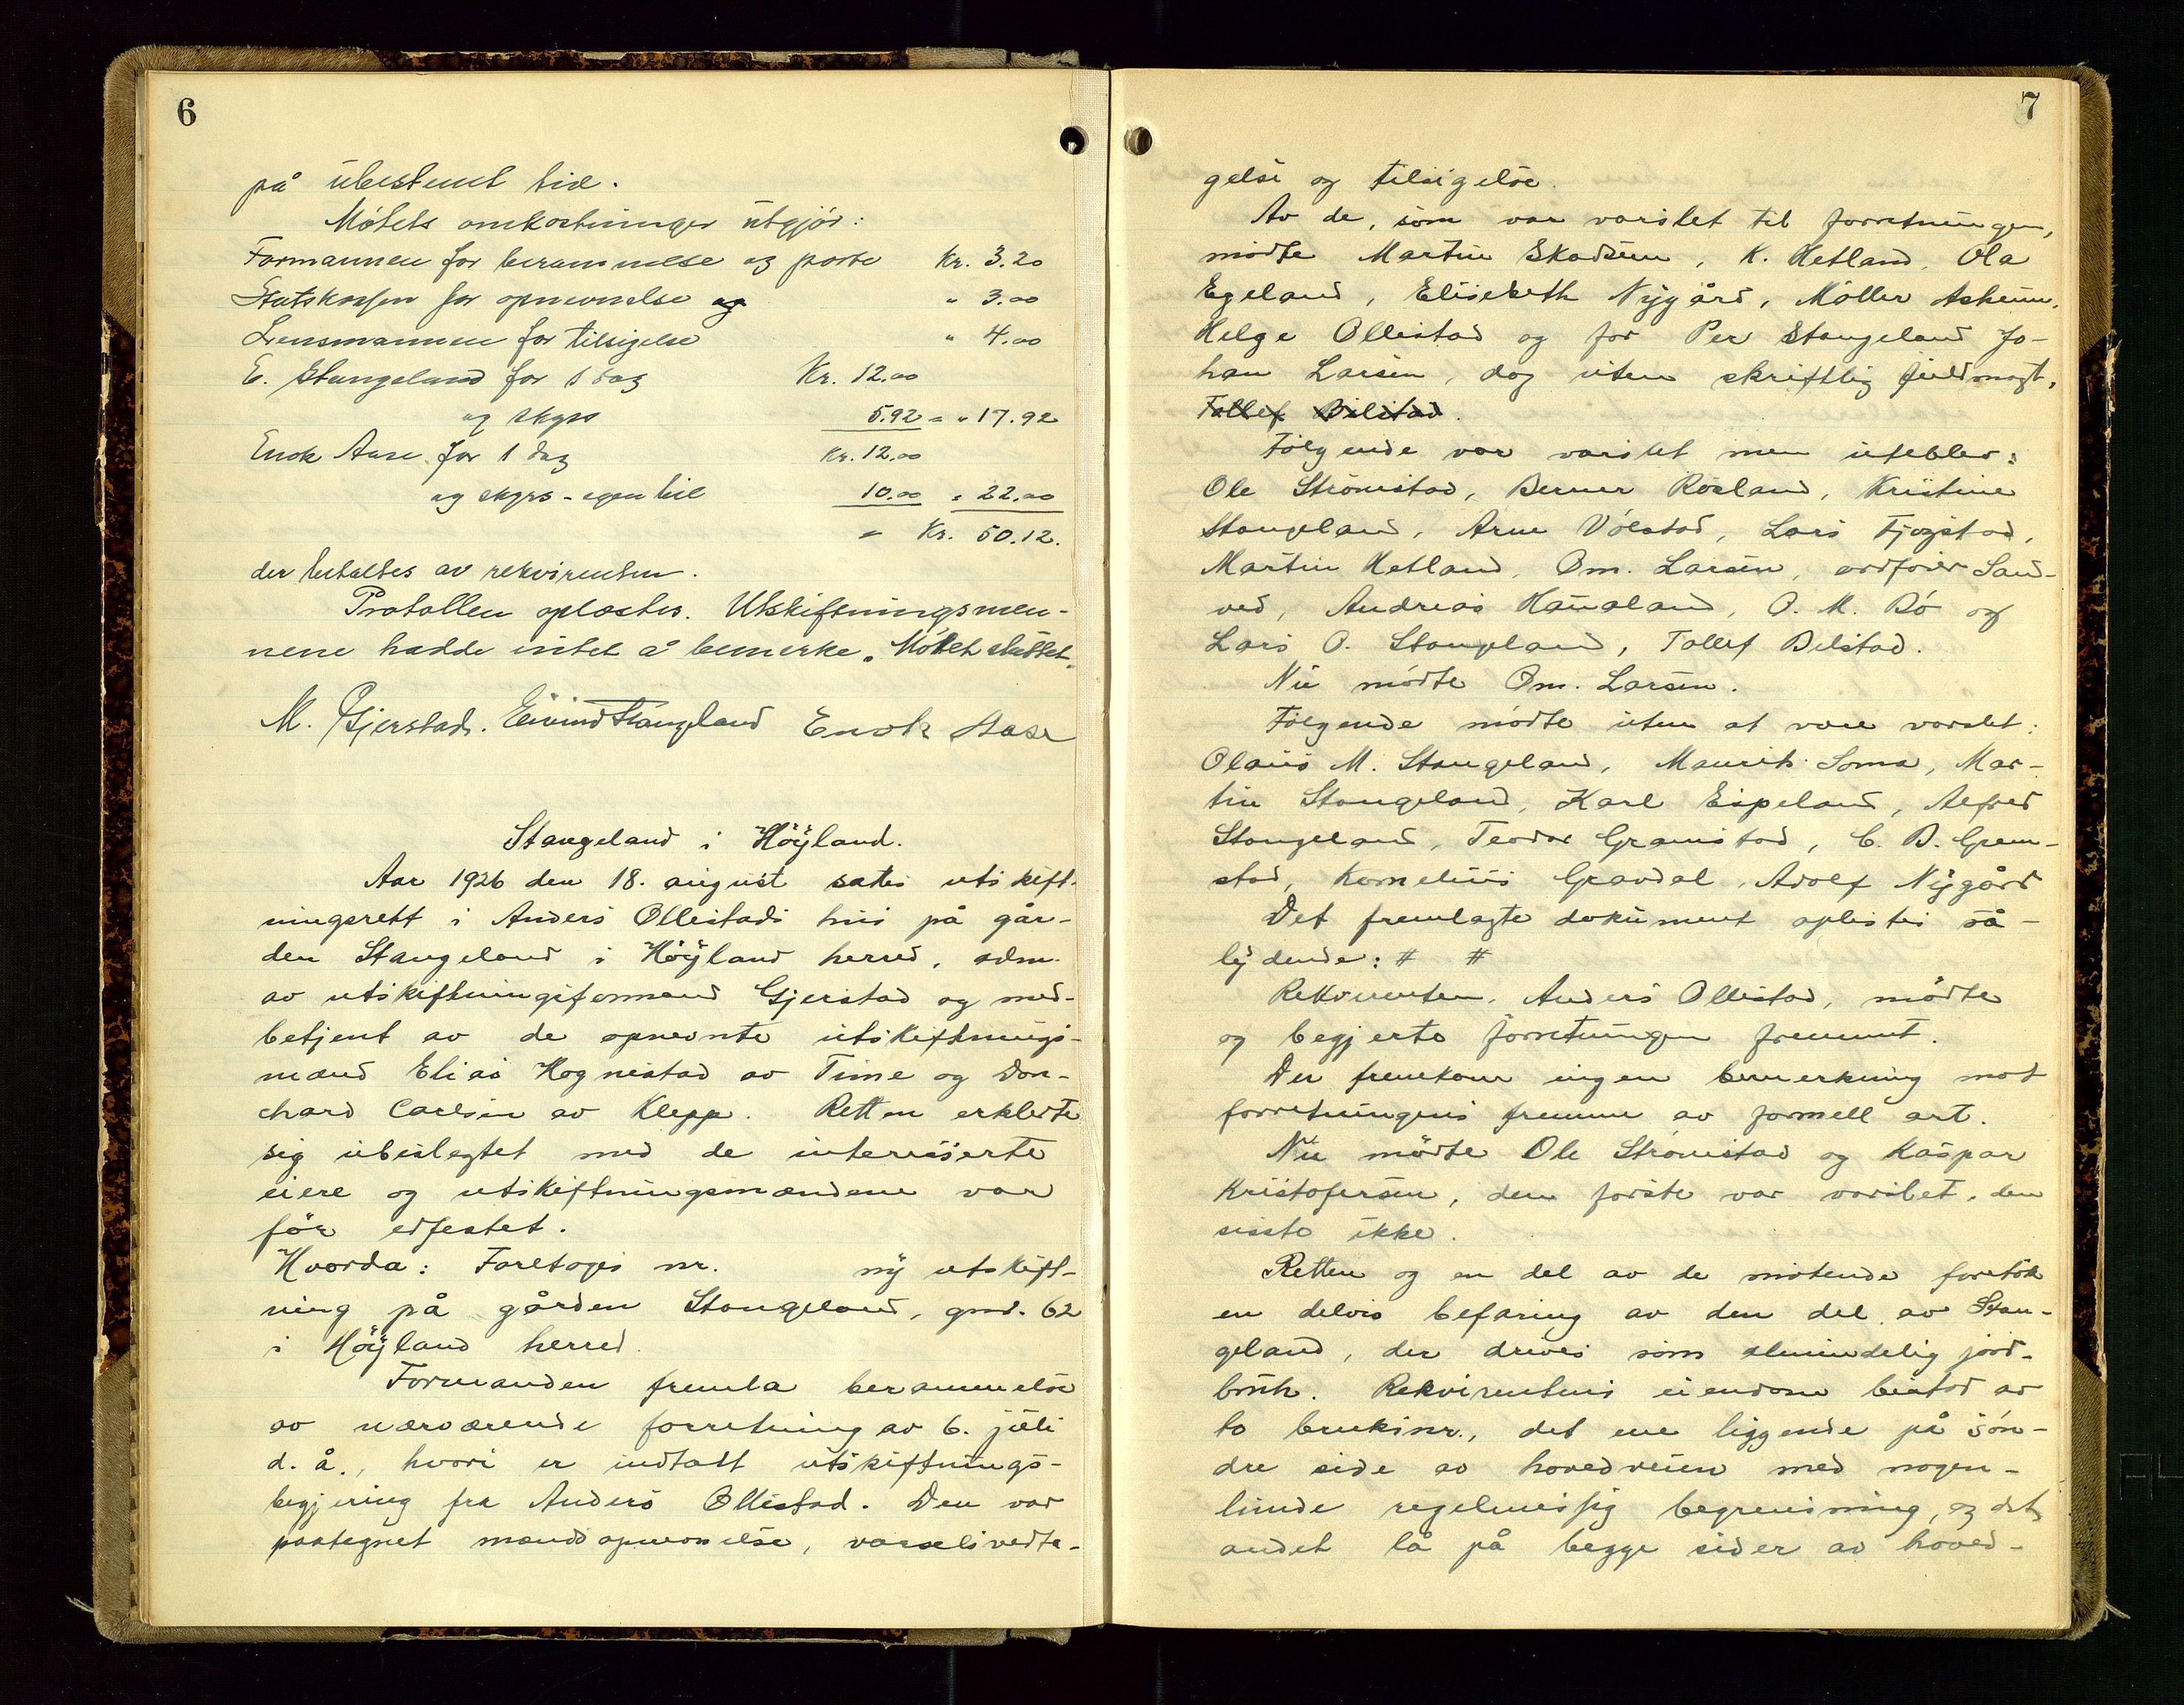 6
på ubestemt tid.
Møtets omkostninger utgjør:
Formannen for berammelse og porto Kr. 3.20
Statskassen for opnevnelse og " 3.00
Lensmannen for tilsigelse " 4.00
E. Stangeland for 1 dag Kr. 12.00
og skyss 5.92 = " 17.92
Enok Aase for 1 dag Kr. 12.00
og skyss - egen bil 10.00 = 22.00
= Kr. 50.12.
der betaltes av rekvirenten.
Protollen oplæstes. Utskiftningsmen-
nene hadde intet å bemerke. Møtet sluttet.
M. Gjerstad. Eivind Stangeland Enok Aase
Stangeland i Höyland.
Aar 1926 den 18. august sattes utskift-
ningsrett i Anders Ollestads hus på går-
den Stangeland i Höyland herred, adm.
av utskiftningsformand Gjerstad og med-
betjent av de opnevnte utskiftnings-
mænd Elias Hognestad av Time og Don-
chard Carlsen av Klepp. Retten erklerte
sig ubeslegtet med de interesserte
eiere og utskiftningsmændene var
før edfestet.
Hvorda: Foretages nr. ny utskift-
ning på gården Stangeland, gnr. 62
i Höyland herred.
Formanden fremla berammelse
av nærværende forretning av 6. juli
d. å., hvori er indtatt utskiftnings-
begjering fra Anders Ollestad. Den var
paategnet mandsopnevnelse, varselsvedta-
7
gelse og tilsigelse.
Av de, som var varslet til forretningen,
mødte Martin Skadsem, K. Hetland, Ola
Egeland, Elisebeth Nygård, Møller Asheim,
Helge Ollestad og for Per Stangeland Jo-
han Larsen, dog uten skriftlig fuldmagt,
Tollef Bilstad.
Følgende var varslet men uteblev:
Ole Strømstad, Berner Rosland, Kristine
Stangeland, Arne Vølstad, Lars Fjogstad,
Martin Hetland, Om. Larsen, ordfører Sand-
ved, Andreas Hanaland, O. M. Bø og
Lars O. Stangeland, Tollef Bilstad.
Nu mødte Om. Larsen.
Følgende mødte uten at være varslet:
Olaus M. Stangeland, Maurits Soma, Mar-
tin Stangeland, Karl Espeland, Alfred
Stangeland, Teodor Gramstad, C. B. Gram-
stad, Kornelius Gravdal, Adolf Nygård
Det fremlagte dokument oplestes så-
lydende: # #
Rekvirenten, Anders Ollestad, mødte
og begjerte forretningen fremmet.
Der fremkom ingen bemerkning mot
forretningens fremme av formell art.
Nu mødte Ole Strømstad og Kaspar
Kristofersen, den første var varslet, den
siste ikke.
Retten og en del av de møtende foretok
en delvis befaring av den del av Stan-
geland, der drives som almindelig jord-
bruk. Rekvirentens eiendom bestod av
to bruksnr., det ene liggende på søn-
dre side av hovedveien med nogen-
lunde regelmessig begrensning, og det
andet lå på begge sider av hoved-